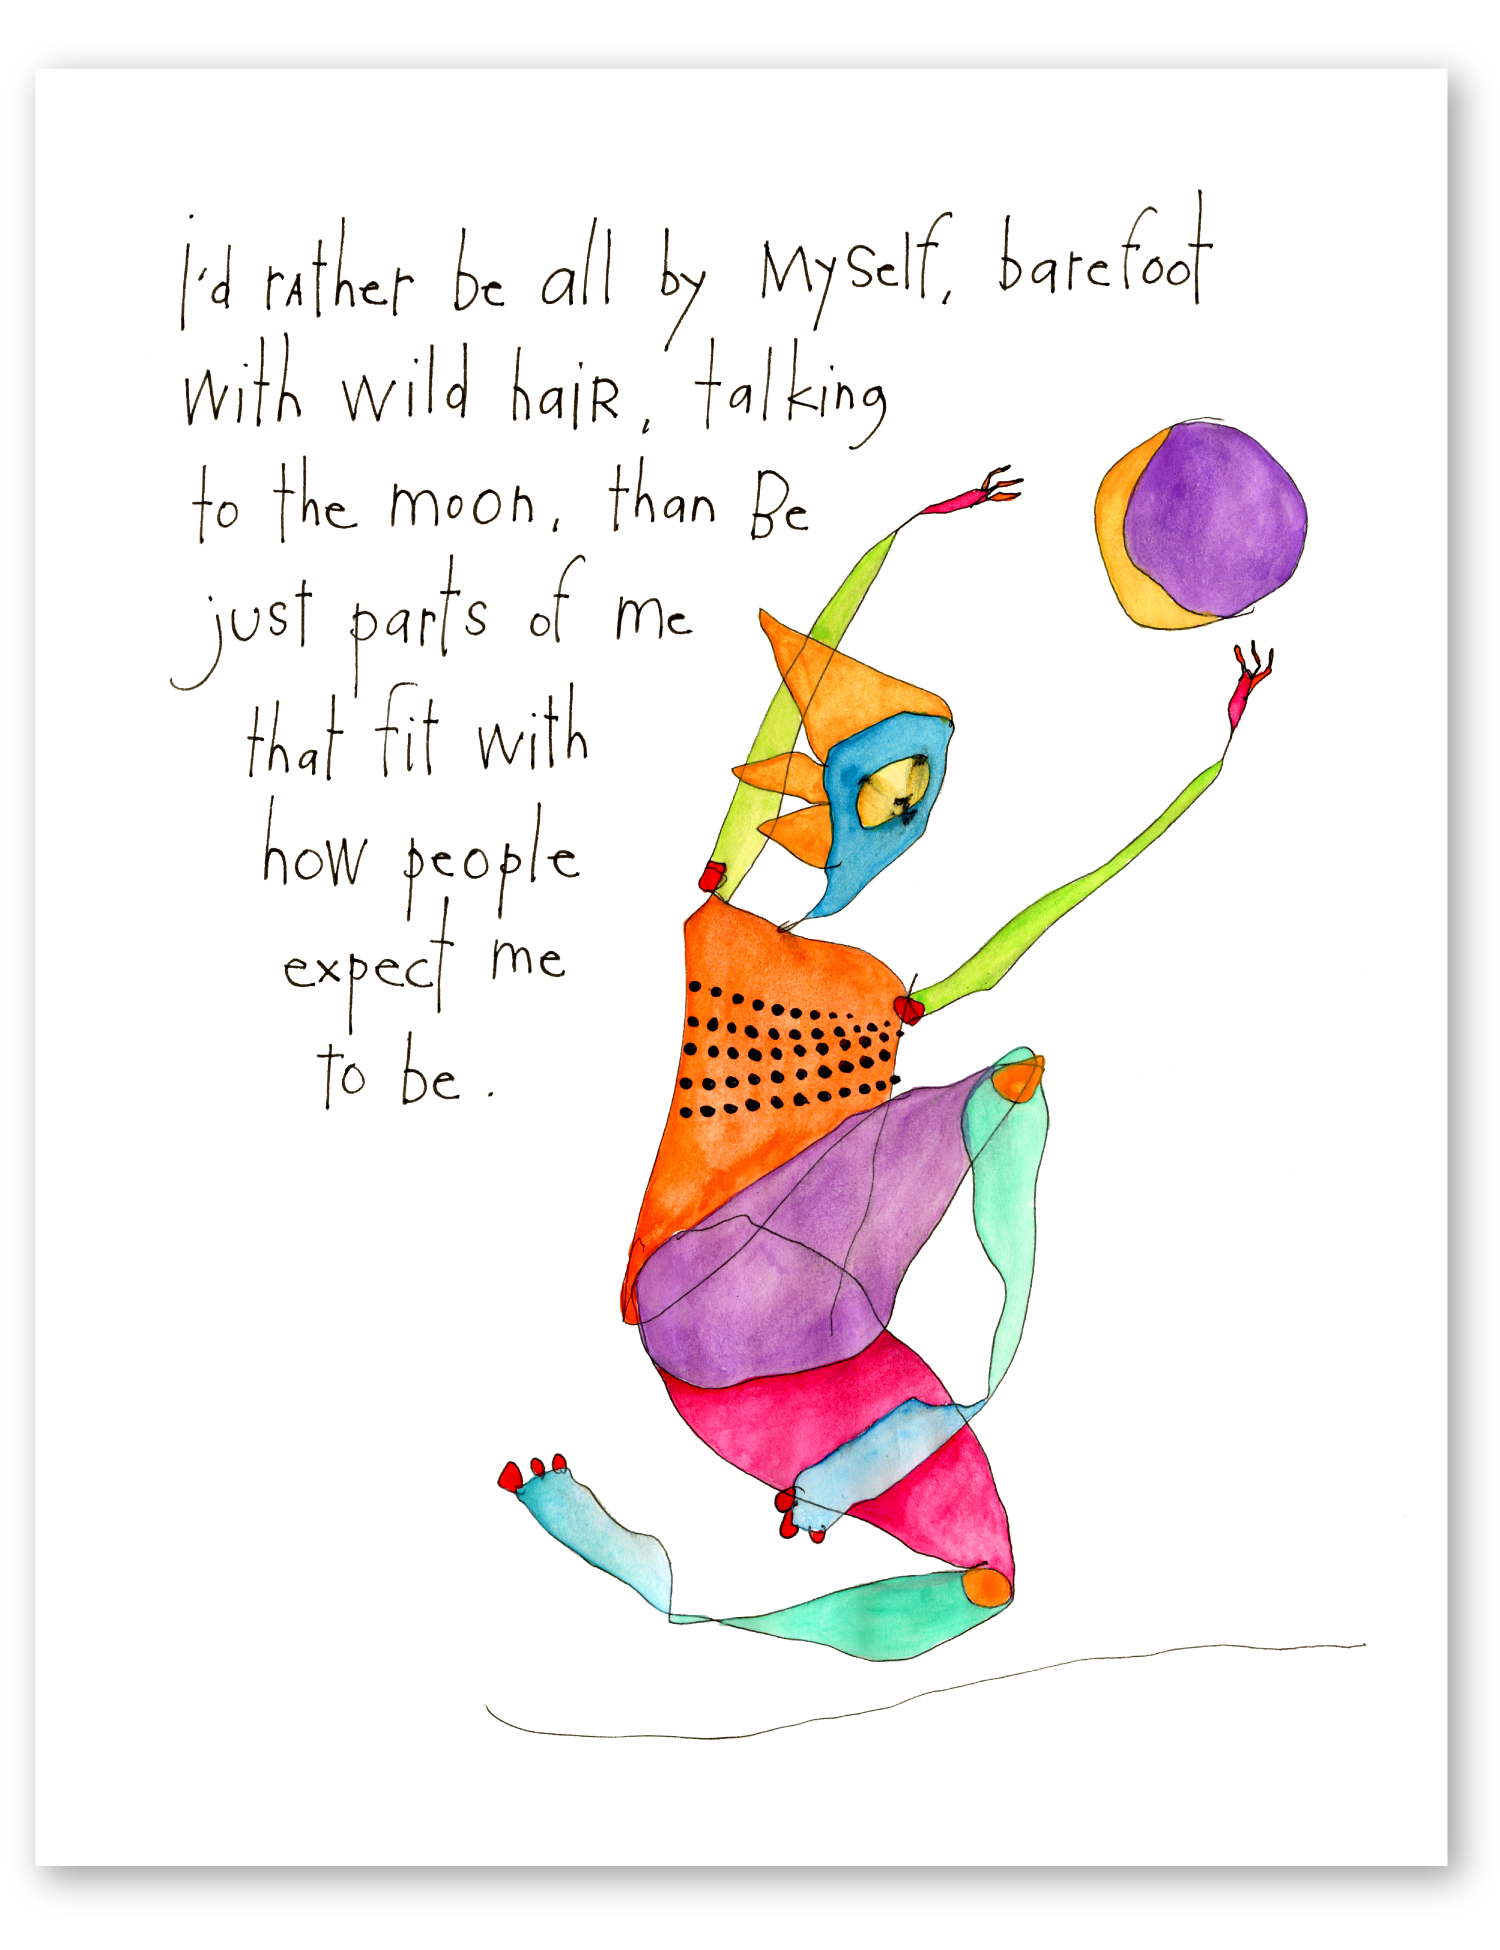 i'd rAther be all by MySelf, barefoot
with wild haiR, talking
to the moon, than Be
just parts of me
that fit with
how people
expect me
to be.